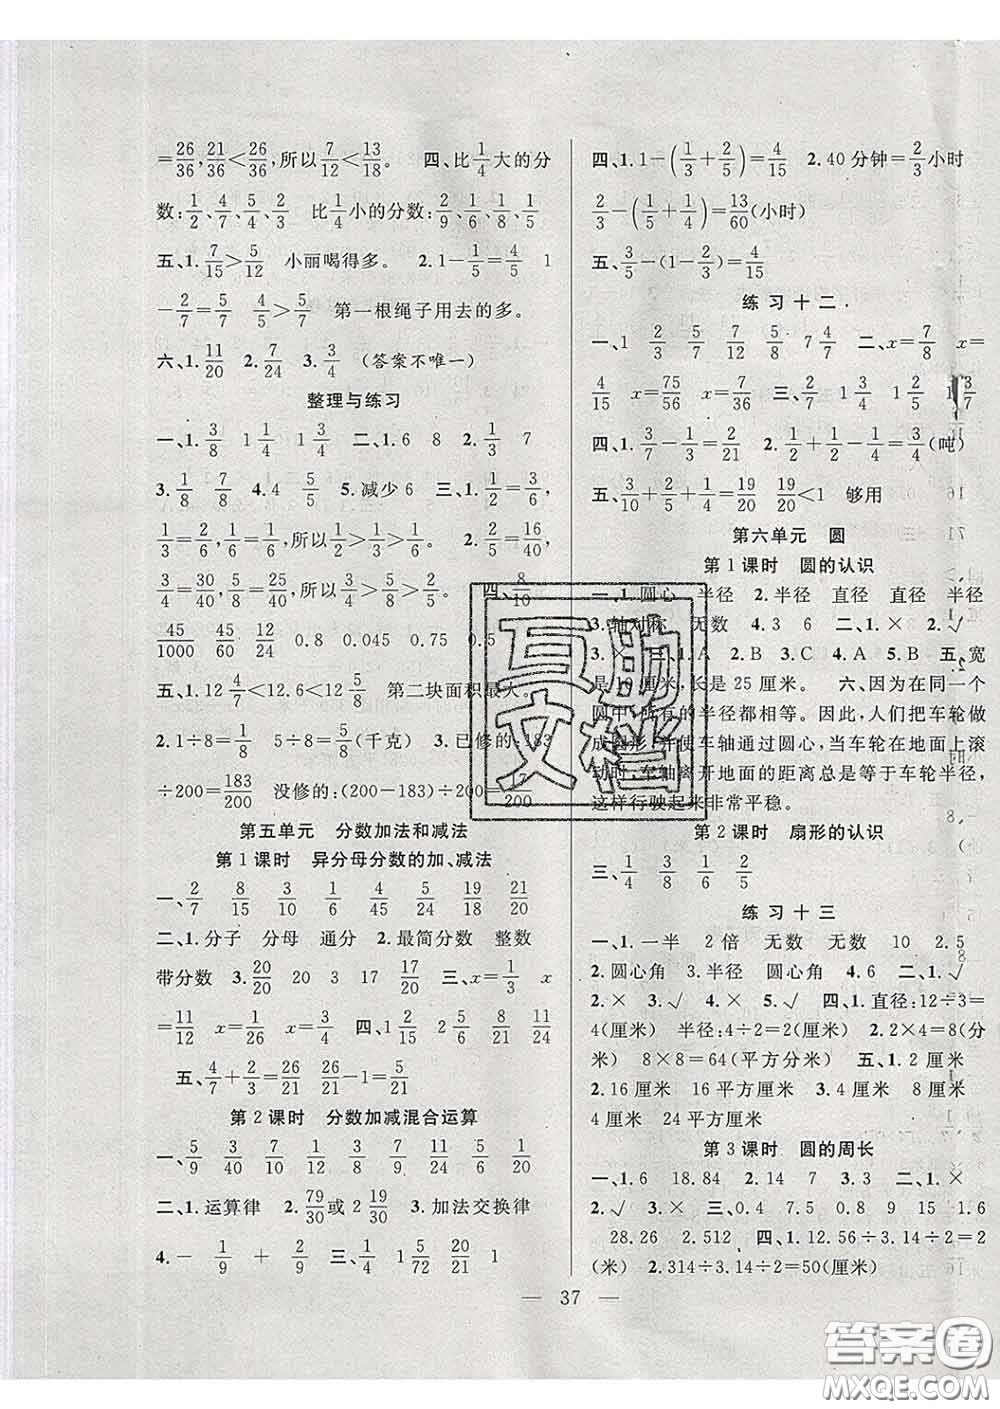 =26/36,21/36<26/36,所以7/12<13/18。 四、比1/4大的分
数:1/2、4/7、5/4、2/3 比1/4小的分数:2/9、1/6、1/8、1/5
五、1.7/15>5/12 小丽喝得多。 2.1-1/5=4/5 1
-2/7=5/7 4/5>5/7 第一根绳子用去的多。
六、1.11/20 2.7/24 3.3/4 (答案不唯一)
整理与练习
一、1.3/8 1 1/4 1 3/4 二、1.6 8 2.1/3 7
3.1/8 7/8 4.4 5/5 5.减少6 三、1.1/2=3/6,
1/3=2/6,1/6=1/6,所以1/2>1/3>1/6。 2.2/5=16/40,
3/4=30/40 四、8/10
45/1000 45/60 12/24 0.8 0.045 0.75 0.5
五、1.12 4/7<12.6<12 5/8 第二块面积最大。
2.1÷8=1/8 5÷8=5/8(千克) 3.已修的:183
÷200=183/200 没修的:(200-183)÷200=17/200
第五单元 分数加法和减法
第1课时 异分母分数的加、减法
一、2/7 8/15 3/10 1/6 4/45 5/24 19/18 21/20
二、1.分子 分母 通分 2.最简分数 整数
带分数 3.20/20 20 3 17 17/20 三、x=1/3 x
=11/12 x=1/24 x=3/4 四、1 2/15 5/2 8/21 11/24
五、4/7+2/3=26/21 26/21-1=5/21
第2课时 分数加减混合运算
一、5/9 3/40 7/10 1/12 3/8 7/9 11/24 4/15 1/20
二、1.运算律 2.79/30或2 19/30 3.加法交换律
4.- 1/9 + 2/9 三、1 1 5/72 20/21 1
四、1.1-(1/3+2/5)=4/15 2.40分钟=2/3小时
2/3-(1/5+1/4)=13/60(小时)
五、3/5-(1-2/3)=4/15
练习十二
一、1 3/2 5/7 7/12 5/8 7 4/7 二、x=7/8 x=
4/15 x=75/56 x=3/4 三、2 1 3/4 1 2/5 1 3/7
四、1.3/7-1/3=2/21 2.1/2+1/2-1/4=3/4(吨)
五、3/10+1/4+2/5=19/20 19/20<1 够用
第六单元 圆
第1课时 圆的认识
一、1.圆心 半径 2.半径 直径 直径 半径
3.轴对称 无数 4.3 6 二、1.× 2.√
3.× 三、1.A 2.B 3.C 4.A 5.B 五、宽
是10厘米,长是25厘米。 六、因为在同一个
圆中,所有的半径都相等。因此,人们把车轮做
成圆形,并使车轴通过圆心,当车轮在地面上滚
动时,车轴离开地面的距离总是等于车轮半径,
这样行驶起来非常平稳。
第2课时 扇形的认识
三、1/4 3/8 1/6 2/5
练习十三
一、1.一半 2倍 无数 无数 10 2.5
2.圆心角 3.半径 圆心角 4.6 二、1.√
2.× 3.√ 4.× 5.√ 四、1.直径:12÷3=
4(厘米) 半径:4÷2=2(厘米) 2.2×4=8(分
米) 8×8=64(平方分米) 五、1.2厘米
2.16厘米 16平方厘米 3.4厘米 8厘米
4厘米 24平方厘米
第3课时 圆的周长
一、1.6 18.84 2.14 7 3.3 二、1.×
2.√ 3.× 三、3 7.5 0.8 9 15 1.6
28.26 2.512 四、1.12.56÷3.14÷2=2
(米) 2.314÷3.14÷2=50(厘米)
— 37 —
互助文档
答案圈
MXQE.COM